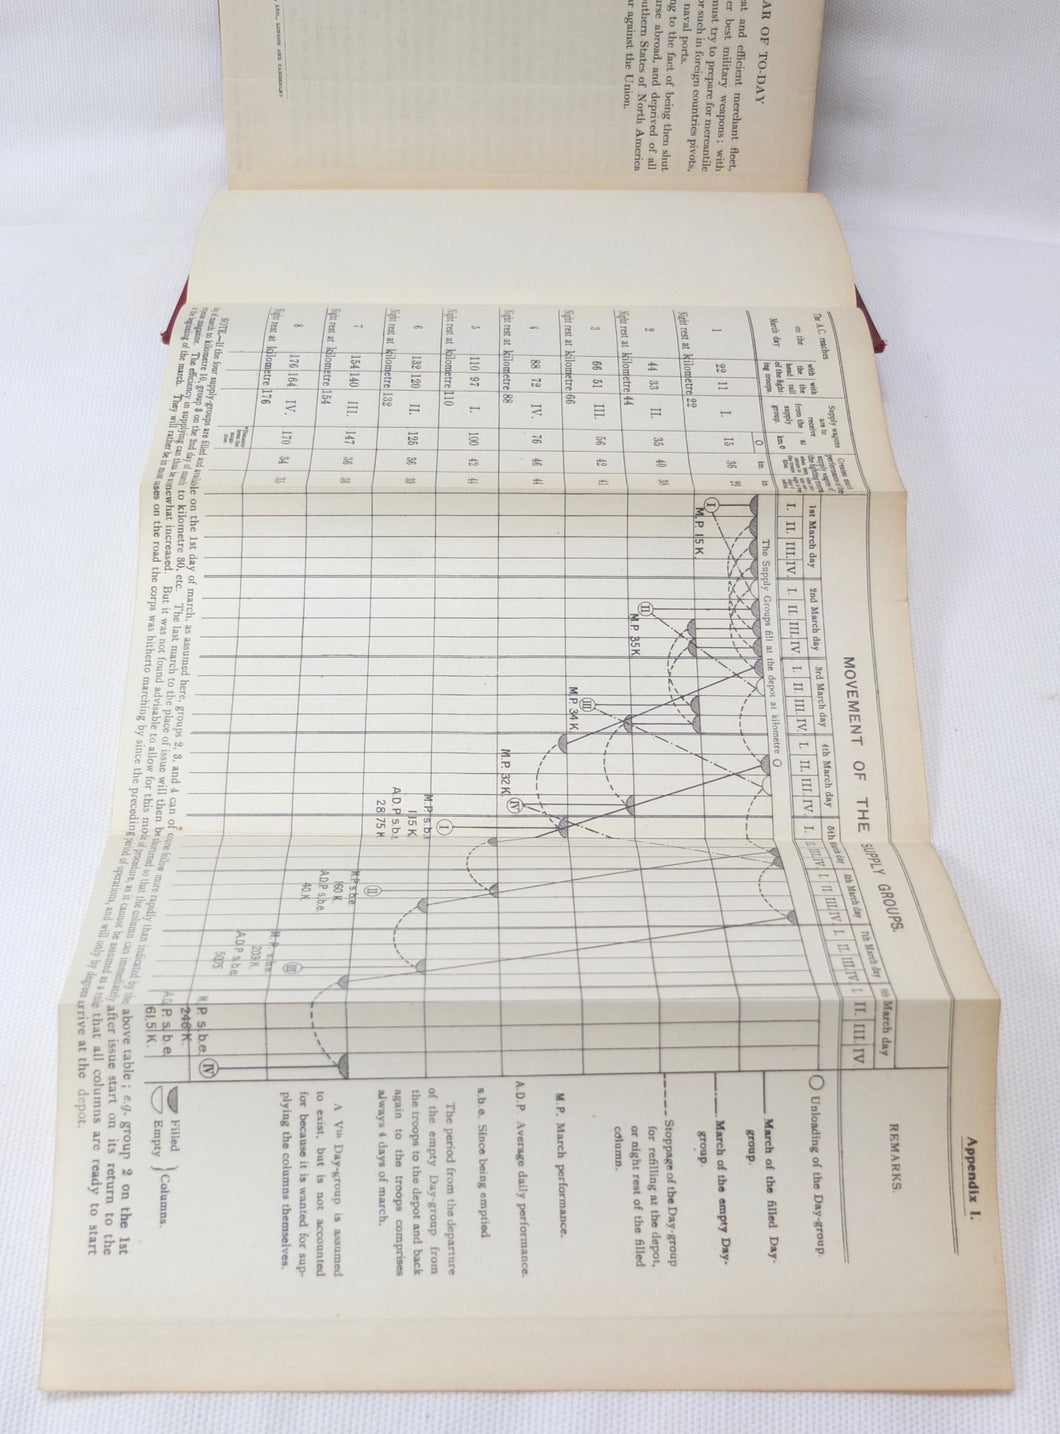 AR OF TO-DAY
at and efficient merchant fleet,
er best military weapons; with
must try to prepare for mercantile
or such in foreign countries pivots,
naval ports.
ng to the fact of being then shut
rse abroad, and deprived of all
uthern States of North America
r against the Union.
LTD., LONDON AND
Appendix I.
MOVEMENT OF THE SUPPLY GROUPS.
REMARKS.
The A.C. reaches
on the
March day
with the head
with the tail
of the fighting troops.
Supply wagons
are to
receive
from the
supply
group.
at
km.
1st March day
2nd March day
3rd March day
4th March day
5th March day
6th March day
7th March day
8th March day
I. II. III. IV.
I. II. III. IV.
I. II. III. IV.
I. II. III. IV.
I. II. III. IV.
I. II. III. IV.
I. II. III. IV.
I. II. III. IV.
The Supply Groups fill at the depot at kilometre O
1 22 11 I. 15 36
Night rest at kilometre 22
2 44 33 II. 35 40
Night rest at kilometre 44
3 66 51 III. 56 42 41
Night rest at kilometre 66
4 88 72 IV. 76 46 44
Night rest at kilometre 88
5 110 97 I. 100 42 44
Night rest at kilometre 110
6 132 120 II. 125 36
Night rest at kilometre 132
7 154 140 III. 147 36
Night rest at kilometre 154
8 176 164 IV. 170 34
Night rest at kilometre 176
I
M.P. 15 K
II
M.P. 35K
III
M.P. 34 K
IV
M.P. 32 K
I
M.P. s.b.e
115 K
A.D.P. s.b.e
28.75 K
II
M.P. s.b.e
160 K.
A.D.P. s.b.e.
40 K.
III
M.P. s.b.e
203 K.
A.D.P. s.b.e
50.75
IV
M.P. s.b.e.
246 K
A.D.P. s.b.e.
61.5 K.
Unloading of the Day-group.
March of the filled Day-
group.
March of the empty Day-
group.
Stoppage of the Day-group
for refilling at the depot,
or night rest of the filled
column.
M.P. March performance.
A.D.P Average daily performance.
s.b.e. Since being emptied
The period from the departure
of the empty Day-group from
the troops to the depot and back
again to the troops comprises
always 4 days of march.
A Vth Day-group is assumed
to exist, but is not accounted
for because it is wanted for sup-
plying the columns themselves.
Filled
Empty
Columns.
NOTE.—If the four supply-groups are filled and available on the 1st day of march, as assumed here, groups 2, 3, and 4 can of course follow more rapidly than indicated by the above table; e.g. group 2 on the 1st
day of march to kilometre 16, group 3 on the 2nd day of march to kilometre 30, etc. The last march to the place of issue will then be shortened so that the column can immediately after issue start on its return to the
magazine. The efficiency in supplying can thus be somewhat increased. But it was not found advisable to allow for this mode of procedure, as it cannot be assumed as a rule that all columns are ready to start
at the beginning of the march. They will rather be in most cases on the road the corps was hitherto marching by since the preceding period of operations, and will only by degrees arrive at the depot.